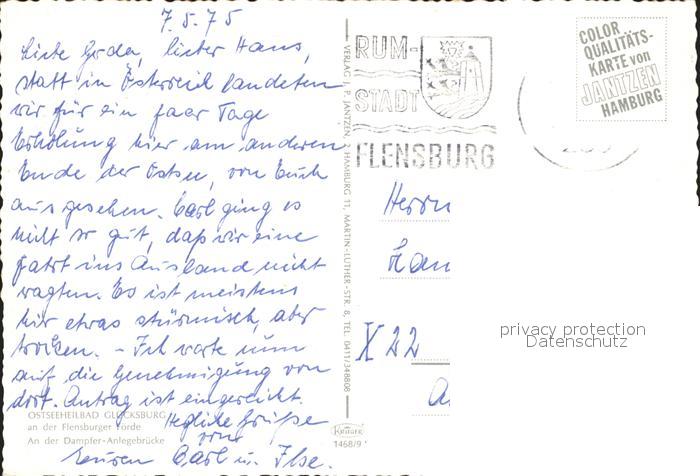 7.5.75
Liebe Gerda, lieber Hans,
statt in Österreich landeten
wir für ein paar Tage
Erholung hier am anderen
Ende der Ostsee, von Euch
aus gesehen. Carl ging es
nicht so gut, daß wir eine
Fahrt ins Ausland nicht
wagten. Es ist meistens
hier etwas stürmisch, aber
trocken. – Ich warte nun
auf die Genehmigung von
dort. Antrag ist eingereicht.
Herzliche Grüße
von
Euren Carl u. Ilse.
OSTSEEHEILBAD GLÜCKSBURG
an der Flensburger Förde
An der Dampfer-Anlegebrücke
VERLAG J. P. JANTZEN, 2 HAMBURG 11, MARTIN-LUTHER-STR. 8, TEL. 0411/346808
KRÜGER
1468/9
RUM-
STADT
FLENSBURG
COLOR
QUALITÄTS-
KARTE von
JANTZEN
HAMBURG
Herrn
X 22
privacy protection
Datenschutz